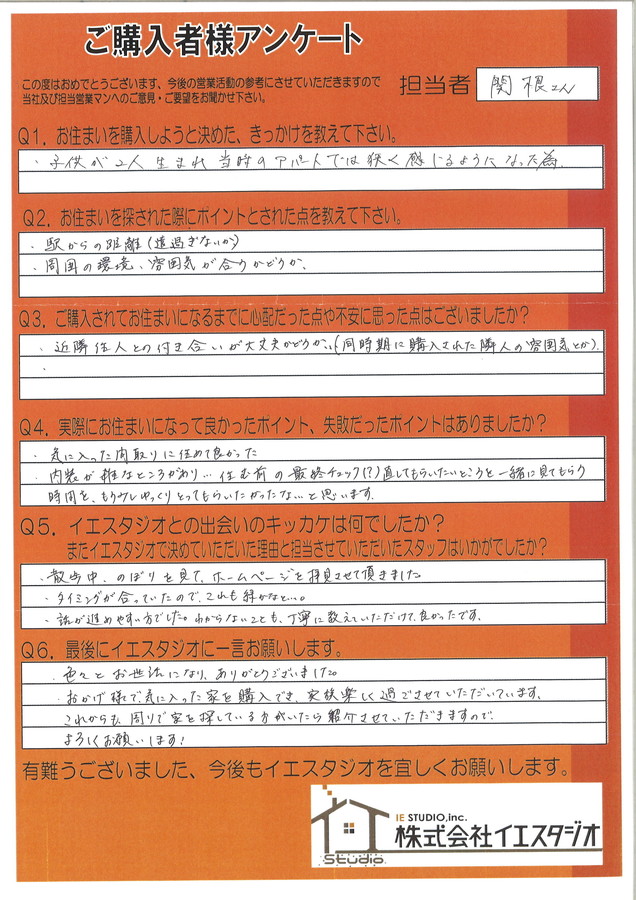 ご購入者様アンケート
この度はおめでとうございます、今後の営業活動の参考にさせていただきますので
当社及び担当営業マンへのご意見・ご要望をお聞かせ下さい。
担当者 関根さん
Q1．お住まいを購入しようと決めた、きっかけを教えて下さい。
・子供が2人生まれ当時のアパートでは狭く感じるようになった為。
Q2．お住まいを探された際にポイントとされた点を教えて下さい。
・駅からの距離(遠過ぎないか)
・周囲の環境、雰囲気が合うかどうか。
Q3．ご購入されてお住まいになるまでに心配だった点や不安に思った点はございましたか？
・近隣住人との付き合いが大丈夫かどうか…(同時期に購入された隣人の雰囲気とか).
・
Q4．実際にお住まいになって良かったポイント、失敗だったポイントはありましたか？
・気に入った間取りに住めて良かった
・内装が雑なところがあり…住む前の最終チェック(?)直してもらいたいところを一緒に見てもらう
時間を、もう少しゆっくりとってもらいたかったな…と思います。
Q5．イエスタジオとの出会いのキッカケは何でしたか？
またイエスタジオで決めていただいた理由と担当させていただいたスタッフはいかがでしたか？
・散歩中、のぼりを見て、ホームページを拝見させて頂きました。
・タイミングが合っていたので、これも縁かなと…。
・話が進めやすい方でした。わからないことも、丁寧に教えていただけて、良かったです。
Q6．最後にイエスタジオに一言お願いします。
・色々とお世話になり、ありがとうございました。
・おかげ様で、気に入った家を購入でき、家族楽しく過ごさせていただいています。
これからも、周りで家を探している方がいたら紹介させていただきますので、
よろしくお願いします！
有難うございました、今後もイエスタジオを宜しくお願いします。
IE STUDIO,inc.
株式会社イエスタジオ
Studio